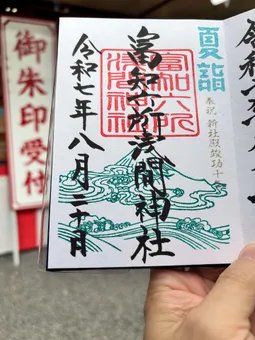 御朱印受付
夏詣
奉祝 新社殿竣功
富知六所浅間神社
富知六所
浅間神社
令和七年八月